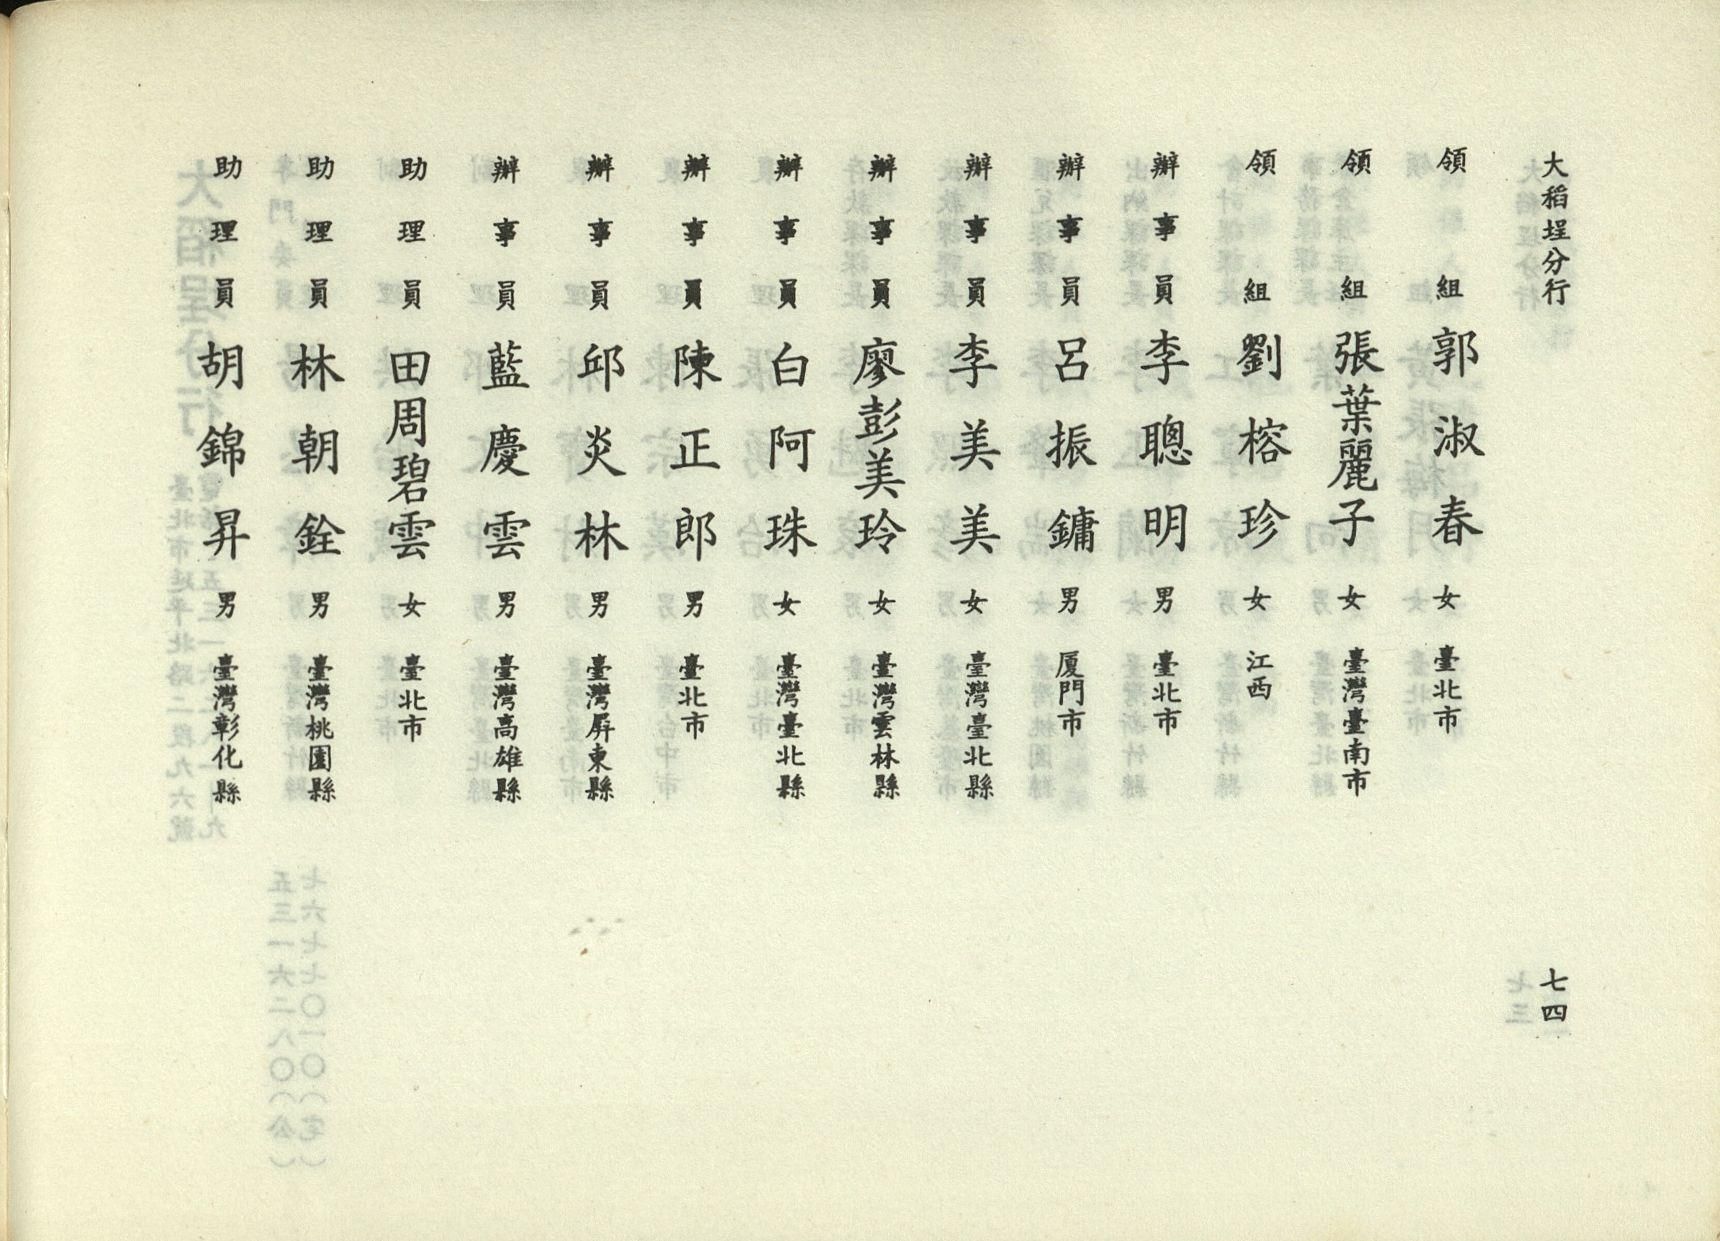 大稻埕分行
七四
領組 郭淑春 女 臺北市
領組 張葉麗子 女 臺灣臺南市
領組 劉榕珍 女 江西
辦事員 李聰明 男 臺北市
辦事員 呂振鏞 男 厦門市
辦事員 李美美 女 臺灣臺北縣
辦事員 廖彭美玲 女 臺灣雲林縣
辦事員 白阿珠 女 臺灣臺北縣
辦事員 陳正郎 男 臺北市
辦事員 邱炎林 男 臺灣屏東縣
辦事員 藍慶雲 男 臺灣高雄縣
助理員 田周碧雲 女 臺北市
助理員 林朝銓 男 臺灣桃園縣
助理員 胡錦昇 男 臺灣彰化縣